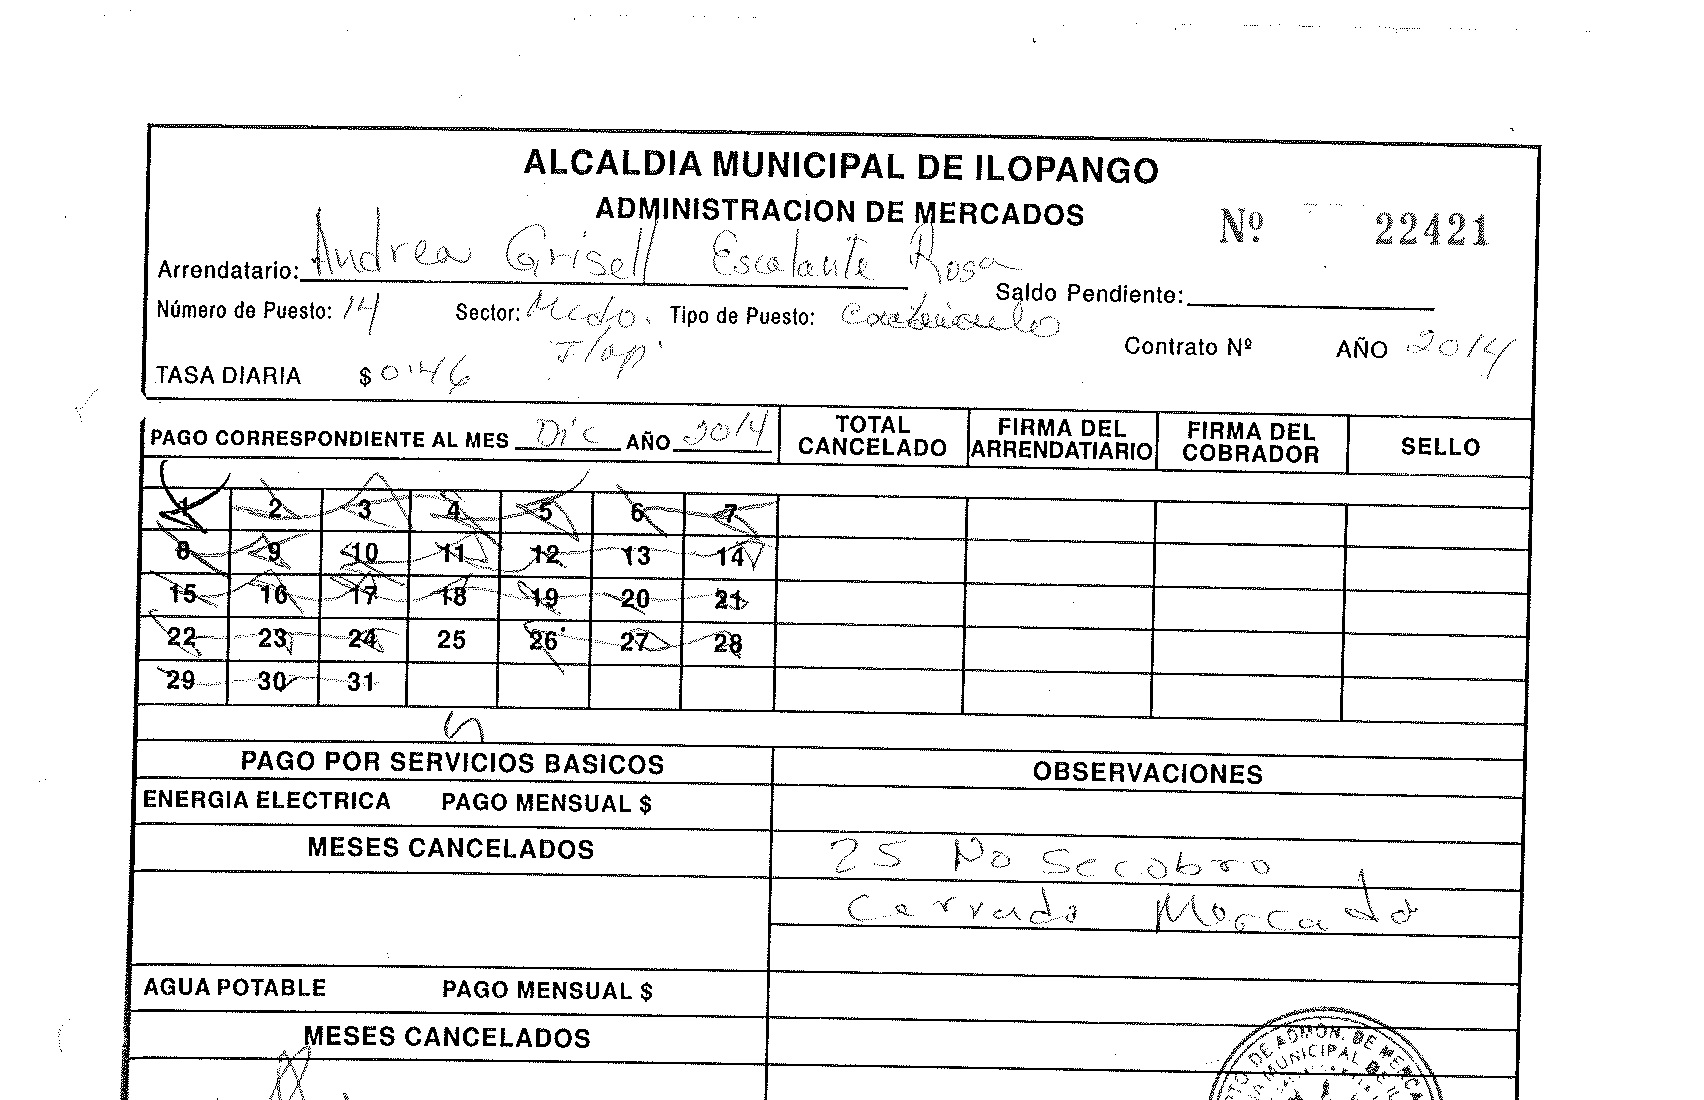 ALCALDIA MUNICIPAL DE ILOPANGO
ADMINISTRACION DE MERCADOS
Nº 22421
Arrendatario: Andrea Grisell Escalante Rosa
Saldo Pendiente:
Número de Puesto: 14 Sector: Mcdo. Ilop. Tipo de Puesto:
Contrato Nº AÑO 2014
TASA DIARIA $ 0.46
PAGO CORRESPONDIENTE AL MES Dic AÑO 2014
TOTAL CANCELADO
FIRMA DEL ARRENDATIARIO
FIRMA DEL COBRADOR
SELLO
1 2 3 4 5 6 7
8 9 10 11 12 13 14
15 16 17 18 19 20 21
22 23 24 25 26 27 28
29 30 31
PAGO POR SERVICIOS BASICOS
OBSERVACIONES
ENERGIA ELECTRICA PAGO MENSUAL $
MESES CANCELADOS
25 No Se cobro
Cerrado Mercado
AGUA POTABLE PAGO MENSUAL $
MESES CANCELADOS
DE ADMON. DE MERCA
MUNICIPAL DE